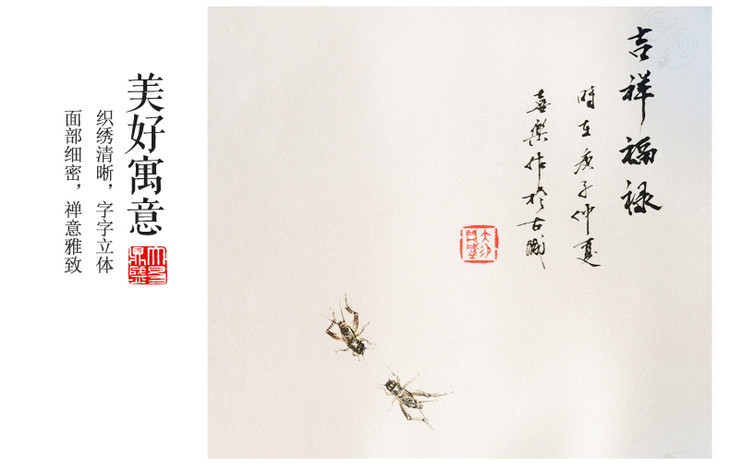 美好寓意
织绣清晰，字字立体
面部细密，禅意雅致
吉祥福禄
时在庚子仲夏
喜乐作于古